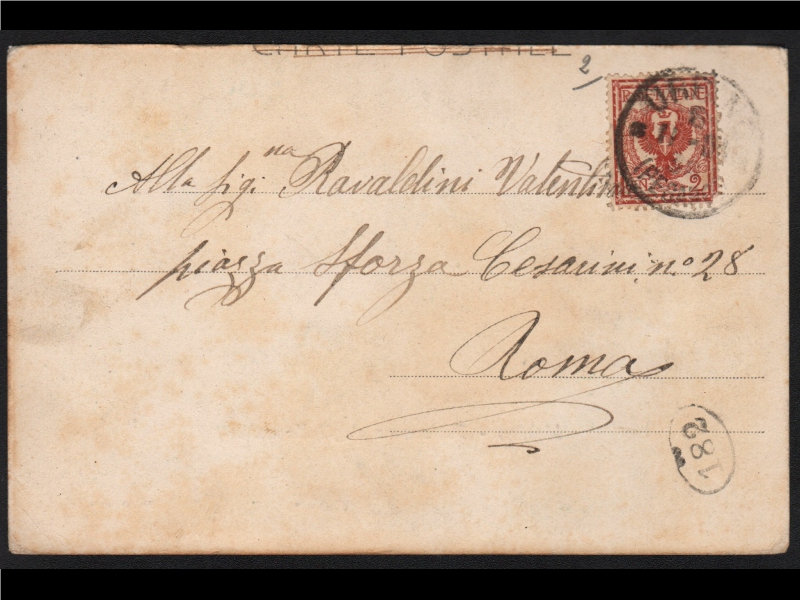 CARTE POSTALE
2
POSTE ITALIANE
2
Alla Sig.na Ravaldini Valentin
piazza Sforza Cesarini n.o 28
Roma
182